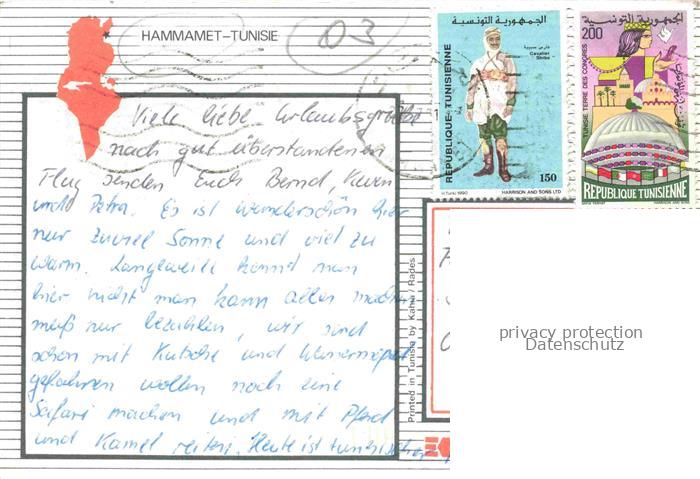 HAMMAMET-TUNISIE
03
Viele liebe Urlaubsgrüße
nach gut überstandenen
Flug senden Euch Bernd, Kevin
und Petra. Es ist wunderschön hier
nur zuviel Sonne und viel zu
warm. Langeweile kennt man
hier nicht man kann alles machen
muß nur bezahlen, wir sind
schon mit Kutsche und
gefahren wollen noch eine
Safari machen und mit Pferd
und Kamel reiten. Heute ist tunesischer
Printed in Tunisia by Kahia / Rades
الجمهورية التونسية
فارس صبرية
Cavalier
Sbriba
REPUBLIQUE TUNISIENNE
150
H.Turki 1990
HARRISON AND SONS LTD
الجمهورية التونسية
200
TUNISIE TERRE DES CONGRES
REPUBLIQUE TUNISIENNE
privacy protection
Datenschutz